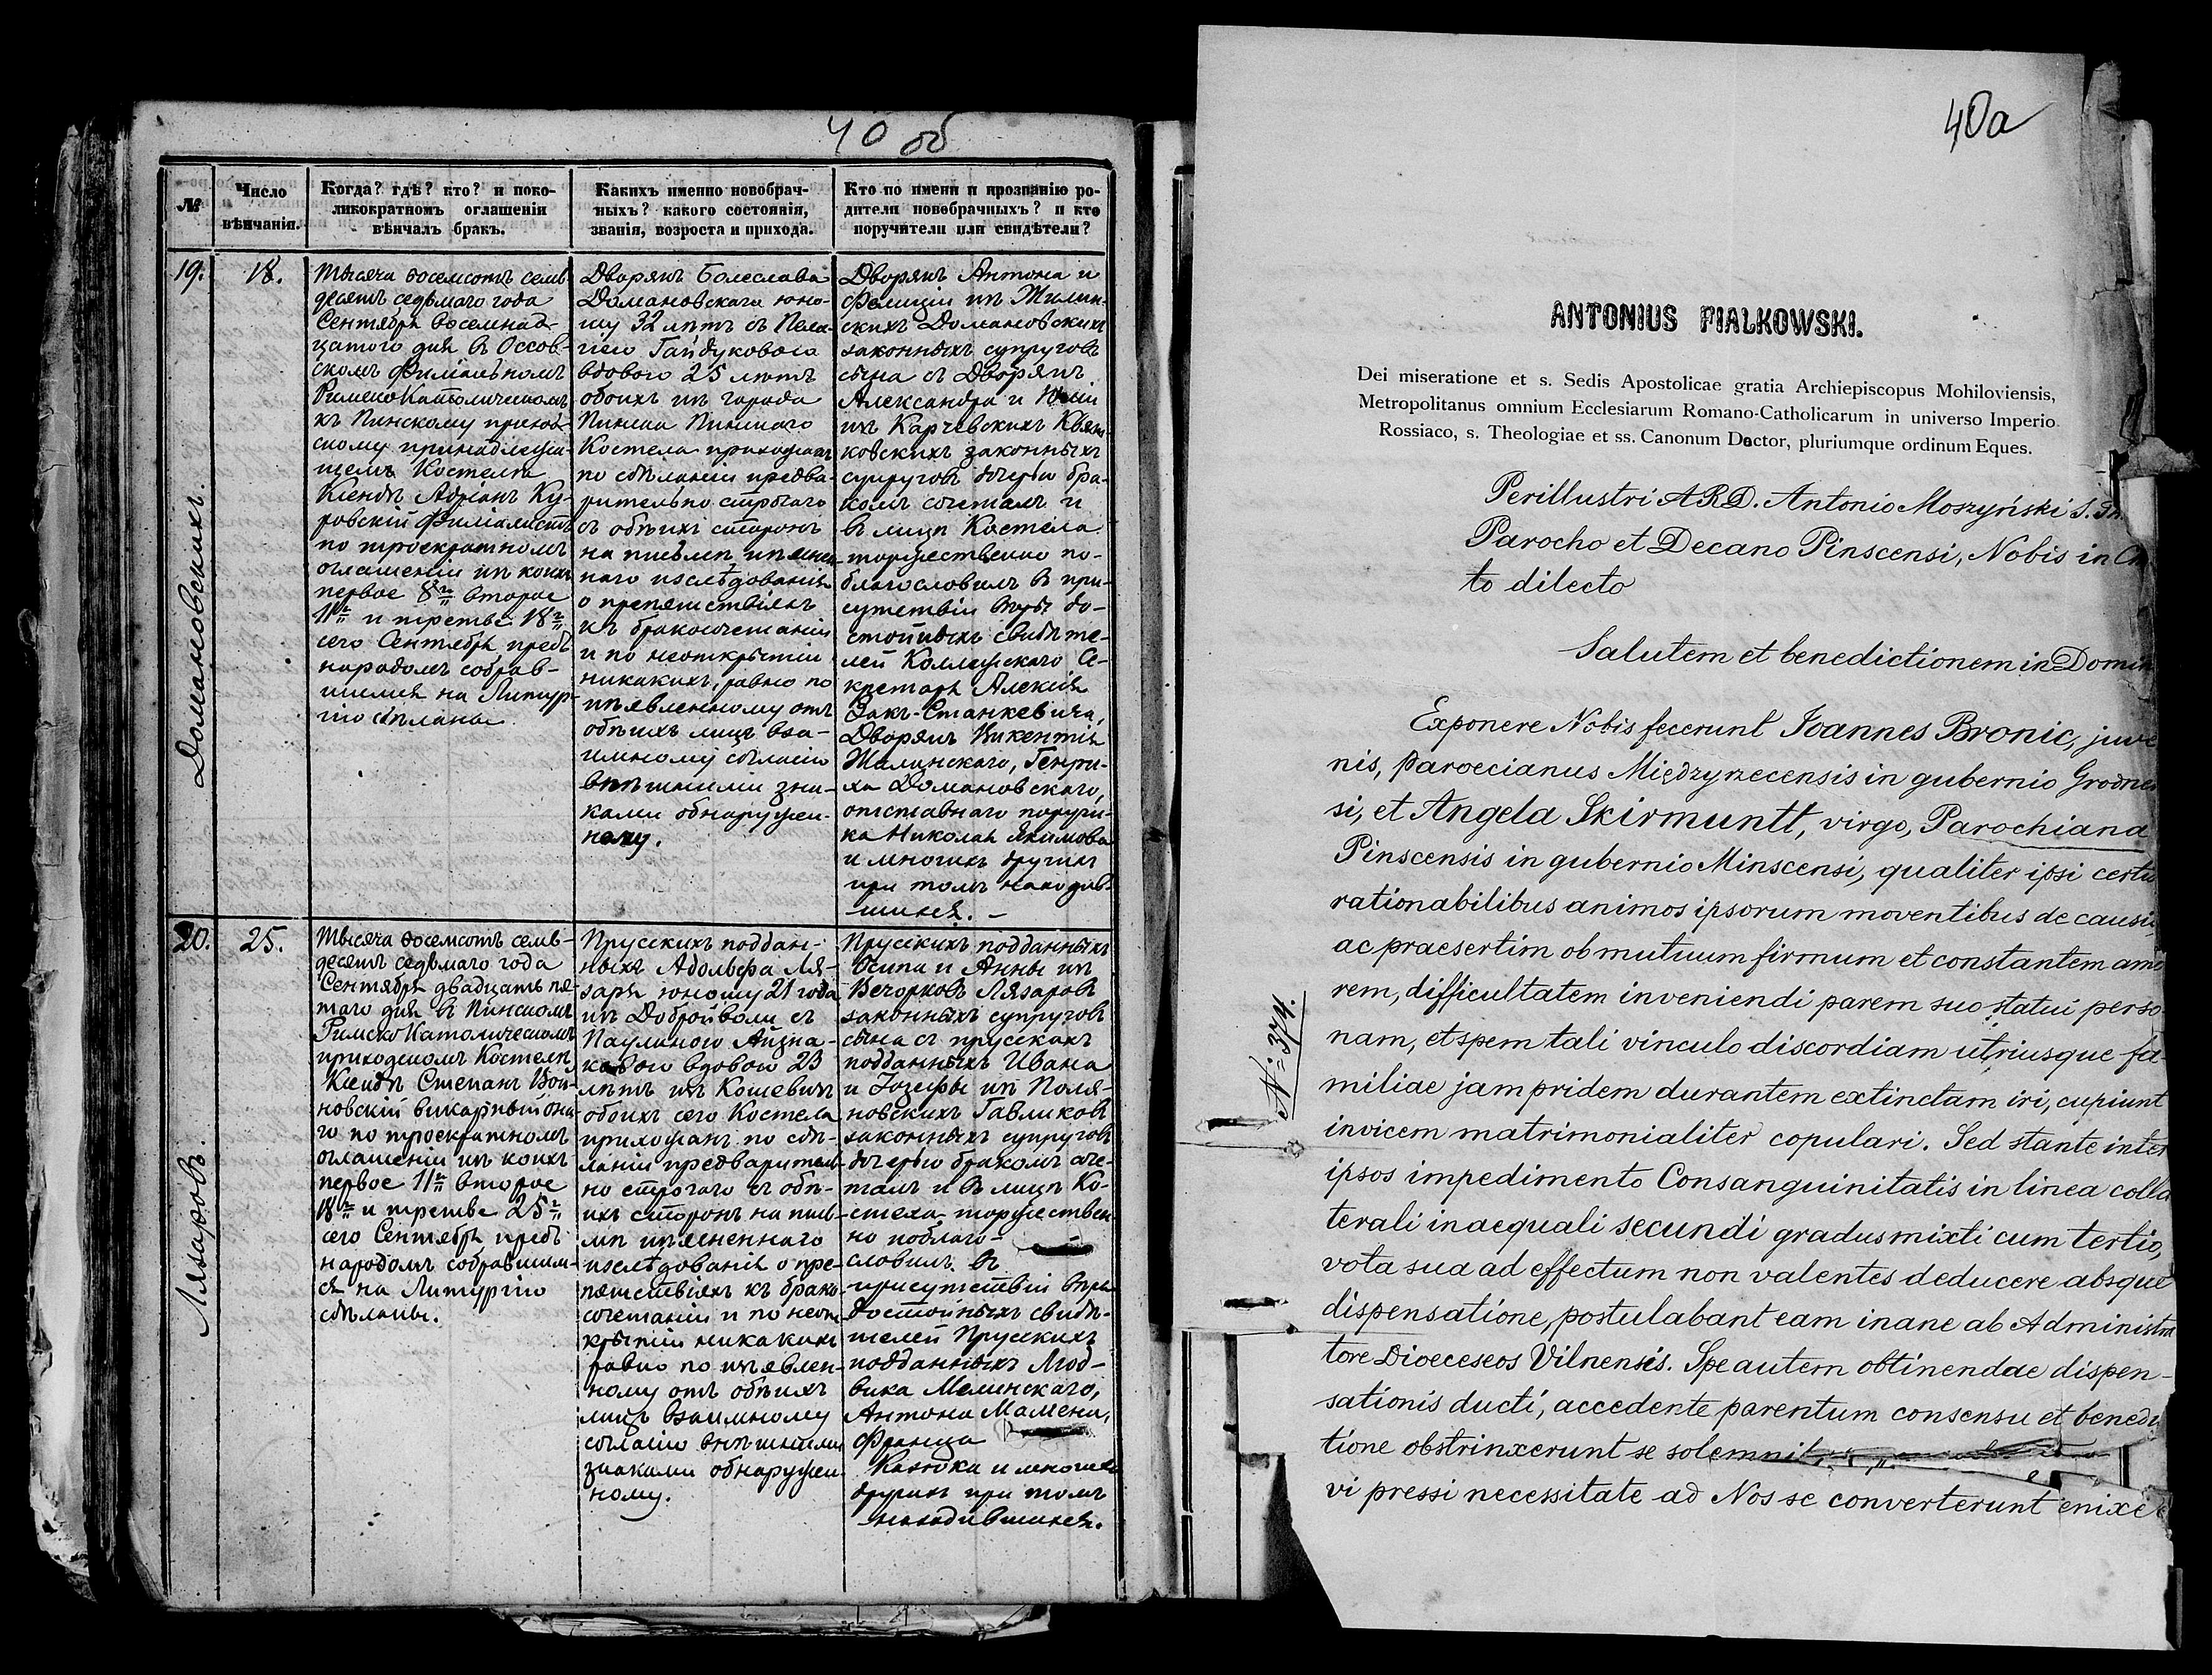 40 об
№
Число
вѣнчанія.
Когда? гдѣ? кто? и поко-
ликократномъ оглашеніи
вѣнчалъ бракъ.
Какихъ именно новобрач-
ныхъ? какого состоянія,
званія, возроста и прихода.
Кто по имени и прозванію ро-
дители новобрачныхъ? и кто
поручители или свидѣтели?
19.
Домановскихъ.
18.
Тысяча восемсотъ семь-
десятъ седьмаго года
Сентября восемнад-
цатого дня въ Оссов-
скомъ Филіальномъ
Римско Католическомъ
къ Пинскому приход-
скому принадлежа-
щемъ Костелѣ
Ксендзъ Адріанъ Ку-
ровскій Филіалистъ
по троекратномъ
оглашеніи изъ коихъ
первое 8го второе
11го и третье 18го
сего Сентября предъ
народомъ собрав-
шимся на Литур-
гію сдѣланы
Дворянъ Болеслава
Домановскаго юно-
шу 32 лѣтъ съ Пела-
гіею Гайдуковою
вдовою 25 лѣтъ
обоихъ изъ города
Пинска Пинскаго
Костела прихожанъ
по сдѣланіи предва-
рительно строгаго
съ обѣихъ сторонъ
на письмѣ изъяснен-
наго изслѣдованія
о препятствіяхъ
къ бракосочетанію
и по неоткрытіи
никакихъ, равно по
изъявленному отъ
обѣихъ лицъ вза-
имному согласію
внѣшними зна-
ками обнаружен-
ному.
Дворянъ Антона и
Фелиціи изъ Жилин-
скихъ Домановскихъ
законныхъ супруговъ
сына съ Дворянъ
Александра и Юліи
изъ Карчевскихъ Квят-
ковскихъ законныхъ
супруговъ дочерью бра-
комъ сочеталъ и
въ лицѣ Костела
торжественно по-
благословилъ въ при-
сутствіи вѣры до-
стойныхъ свидѣте-
лей Коллежскаго Се-
кретаря Алексія
Закъ-Станкевича,
Дворянъ Викентія
Жилинскаго, Генри-
ха Домановскаго,
отставнаго поручи-
ка Николая Якимова
и многихъ другихъ
при томъ находив-
шихся. –
20.
Лязаровъ.
25.
Тысяча восемсотъ семь-
десятъ седьмаго года
Сентября двадцать пя-
таго дня въ Пинскомъ
Римско Католическомъ
приходскомъ Костелѣ
Ксендзъ Степанъ Вой-
новскій викарный она-
го по троекратномъ
оглашеніи изъ коихъ
первое 11го второе
18го и третье 25го
сего Сентября предъ
народомъ собравшим-
ся на Литургію
сдѣланы.
Прусскихъ поддан-
ныхъ Адольфа Ля-
заря юношу 21 года
изъ Добройволи съ
Паулиною Айзна-
ковою вдовою 23
лѣтъ изъ Кошевичъ
обоихъ сего Костела
прихожанъ по сдѣ-
ланіи предваритель-
но строгаго съ обѣ-
ихъ сторонъ на пись-
мѣ изъясненнаго
изслѣдованія о пре-
пятствіяхъ къ брако-
сочетанію и по неот-
крытіи никакихъ
равно по изъявлен-
ному отъ обѣихъ
лицъ взаимному
согласію внѣшними
знаками обнаружен-
ному.
Прусскихъ подданныхъ
Осипа и Анны изъ
Вечорковъ Лязаровъ
законныхъ супруговъ
сына съ прусскихъ
подданныхъ Ивана
и Іозефы изъ Поля-
новскихъ Гавликовъ
законныхъ супруговъ
дочерью бракомъ соче-
талъ и въ лицѣ Ко-
стела торжествен-
но поблаго-
словилъ въ
присутствіи вѣры
достойныхъ свидѣ-
телей Прусскихъ
подданныхъ Люд-
вика Мелинскаго,
Антона
Франца
и многихъ
другихъ при томъ
находившихся.
40a
ANTONIUS FIALKOWSKI.
Dei miseratione et s. Sedis Apostolicae gratia Archiepiscopus Mohiloviensis,
Metropolitanus omnium Ecclesiarum Romano-Catholicarum in universo Imperio
Rossiaco, s. Theologiae et ss. Canonum Doctor, pluriumque ordinum Eques.
Perillustri A.R.D. Antonio Moszyński S. Th.
Parocho et Decano Pinscensi, Nobis in Ch
to dilecto
Salutem et benedictionem in Domin
Exponere Nobis fecerunt Joannes Bronic, juve
nis, paroecianus Międzyrzecensis in gubernio Grodnen
si, et Angela Skirmuntt, virgo, Parochiana
Pinscensis in gubernio Minscensi, qualiter ipsi certis
rationabilibus animos ipsorum moventibus de causis
ac praesertim ob mutuum firmum et constantem amo
rem, difficultatem inveniendi parem suo statui perso
nam, et spem tali vinculo discordiam utriusque fa-
miliae jam pridem durantem extinctam iri, cupiunt
invicem matrimonialiter copulari. Sed stante inter
ipsos impedimento Consanguinitatis in linea colla
terali inaequali secundi gradus mixti cum tertio,
vota sua ad effectum non valentes deducere absque
dispensatione, postulabant eam inane ab Administra
tore Dioeceseos Vilnensis. Spe autem obtinendae dispen-
sationis ducti, accedente parentum consensu et benedic
tione obstrinxerunt se solemnit
vi pressi necessitate ad Nos se converterunt enixe
№ 374.